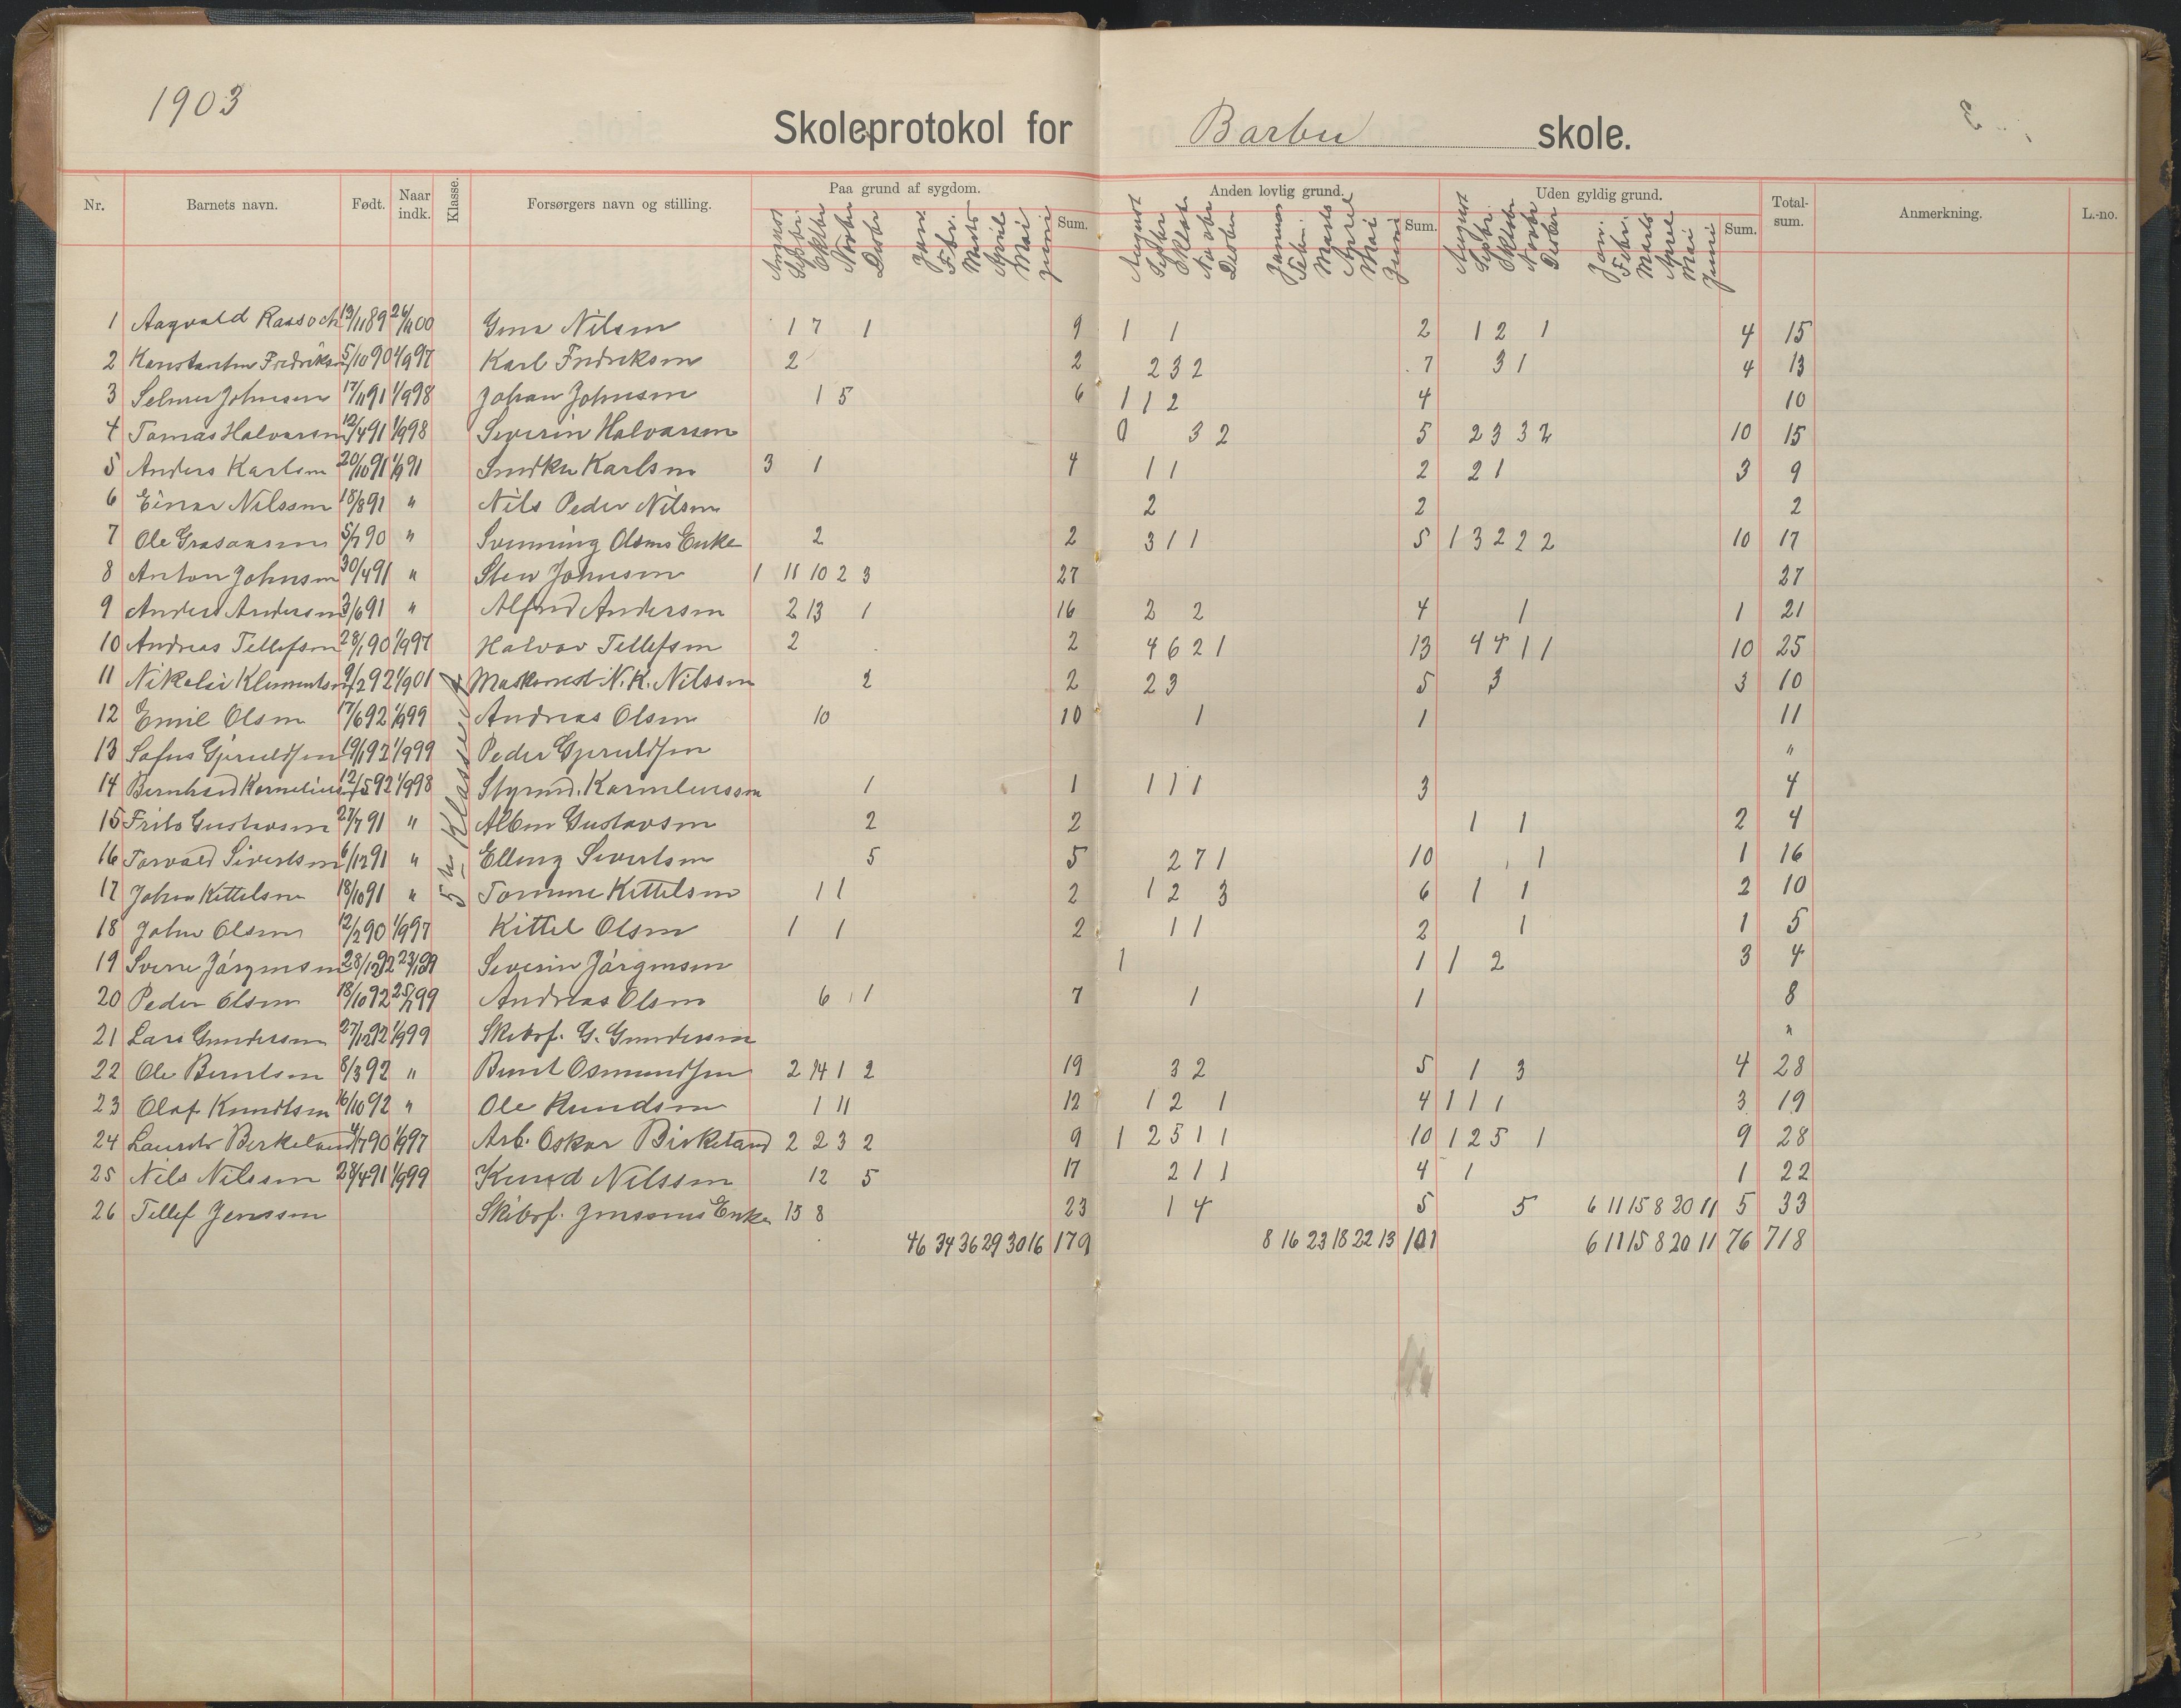 1903
Skoleprotokol for Barbu skole.
Nr. Barnets navn. Født. Naar indk. Klasse. Forsørgers navn og stilling. Paa grund af sygdom. Sum. Anden lovlig grund. Sum. Uden gyldig grund. Sum. Total-sum. Anmerkning. L.-no.
August Septbr. Oktbr Novbr Decbr Jan Febr. Marts April Mai Juni August Septbr Oktob Novbr Decbr Januar Febr. Marts April Mai Juni August Septbr. Oktbr Novbr Decbr Jan. Febr. Marts April Mai Juni
5te Klasse
1 Aagvald 13/1189 26/1100 Nilsen 1 7 1 9 1 1 2 1 2 1 4 15
2 Konstantin Fredriksen 5/1090 1/997 Karl Fredriksen 2 2 2 3 2 7 3 1 4 13
3 Selmer Johnsen 17/1191 1/998 Johan Johnsen 1 5 6 1 1 2 4 10
4 Tomas Halvorsen 12/491 1/998 Severin Halvorsen 3 2 5 2 3 3 2 10 15
5 Anders Karlsen 20/1091 1/991 Karlsen 3 1 4 1 1 2 2 1 3 9
6 Einar Nilssen 18/891 " Nils Peder Nilsen 2 2 2
7 Ole 5/790 " Svenning Olsens Enke 2 2 3 1 1 5 1 3 2 2 2 10 17
8 Anton Johnsen 30/491 " Sten Johnsen 1 11 10 2 3 27 27
9 Anders Andersen 3/691 " Alfred Andersen 2 13 1 16 2 2 4 1 1 21
10 Andreas Tellefsen 28/190 1/997 Halvor Tellefsen 2 2 4 6 2 1 13 4 4 1 1 10 25
11 Nikolai Klementsen 9/292 1/901 Maskinest N. K. Nilssen 2 2 2 3 5 3 3 10
12 Emil Olsen 17/692 1/999 Andreas Olsen 10 10 1 1 11
13 Sofus Gjeruldsen 19/192 1/999 Peder Gjeruldsen "
14 Bernhard Kornelius 12/592 1/998 Styrmd. Korneliussen 1 1 1 1 1 3 4
15 Frits Gustavsen 27/791 " Albin Gustavsen 2 2 1 1 2 4
16 Torvald Sivertsen 6/1291 " Elling Sivertsen 5 5 2 7 1 10 1 1 16
17 Johan Kittelsen 18/1091 " Tomine Kittelsen 1 1 2 1 2 3 6 1 1 2 10
18 John Olsen 12/290 1/997 Kittel Olsen 1 1 2 1 1 2 1 1 5
19 Sverre Jörgensen 28/1292 Severin Jörgensen 1 1 1 2 3 4
20 Peder Olsen 18/1092 Andreas Olsen 6 1 7 1 1 8
21 Lars Gundersen 27/1292 1/999 Skibsf. G. Gundersen "
22 Ole Berntsen 8/392 " Bernt Osmundsen 2 14 1 2 19 3 2 5 1 3 4 28
23 Olaf Knudtsen 16/1092 " Ole Knudsen 1 11 12 1 2 1 4 1 1 1 3 19
24 Laurits Berkeland 4/790 1/997 Arb. Oskar Birkeland 2 2 3 2 9 1 2 5 1 1 10 1 2 5 1 9 28
25 Nils Nilssen 28/491 1/999 Knud Nilssen 12 5 17 2 1 1 4 1 1 22
26 Tellef Jenssen Skibsf. Jenssens Enke 15 8 23 1 4 5 5 6 11 15 8 20 11 5 33
46 34 36 29 30 16 179 8 16 23 18 22 13 101 6 11 15 8 20 11 76 718